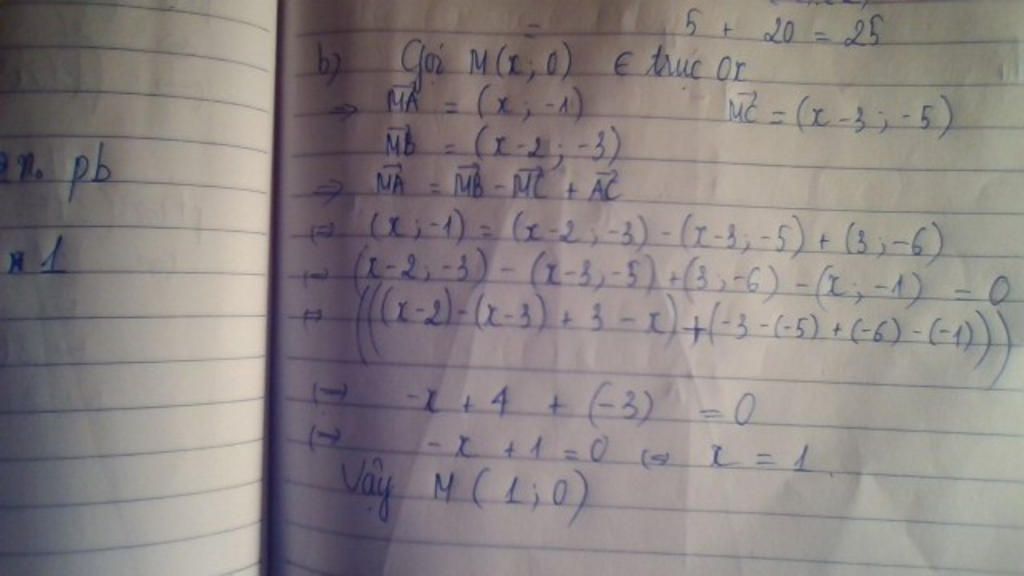 = 5 + 20 = 25
b) Gọi M(x; 0) ∈ trục Ox
⇒ MA = (x; -1) MC = (x-3; -5)
MB = (x-2; -3)
⇒ MA = MB - MC + AC
⇔ (x; -1) = (x-2; -3) - (x-3; -5) + (3; -6)
⇔ (x-2; -3) - (x-3; -5) + (3; -6) - (x; -1) = 0
⇔ (((x-2) - (x-3) + 3 - x) + (-3 - (-5) + (-6) - (-1)))
⇔ -x + 4 + (-3) = 0
⇔ -x + 1 = 0 ⇔ x = 1
Vậy M(1; 0)
pb
1